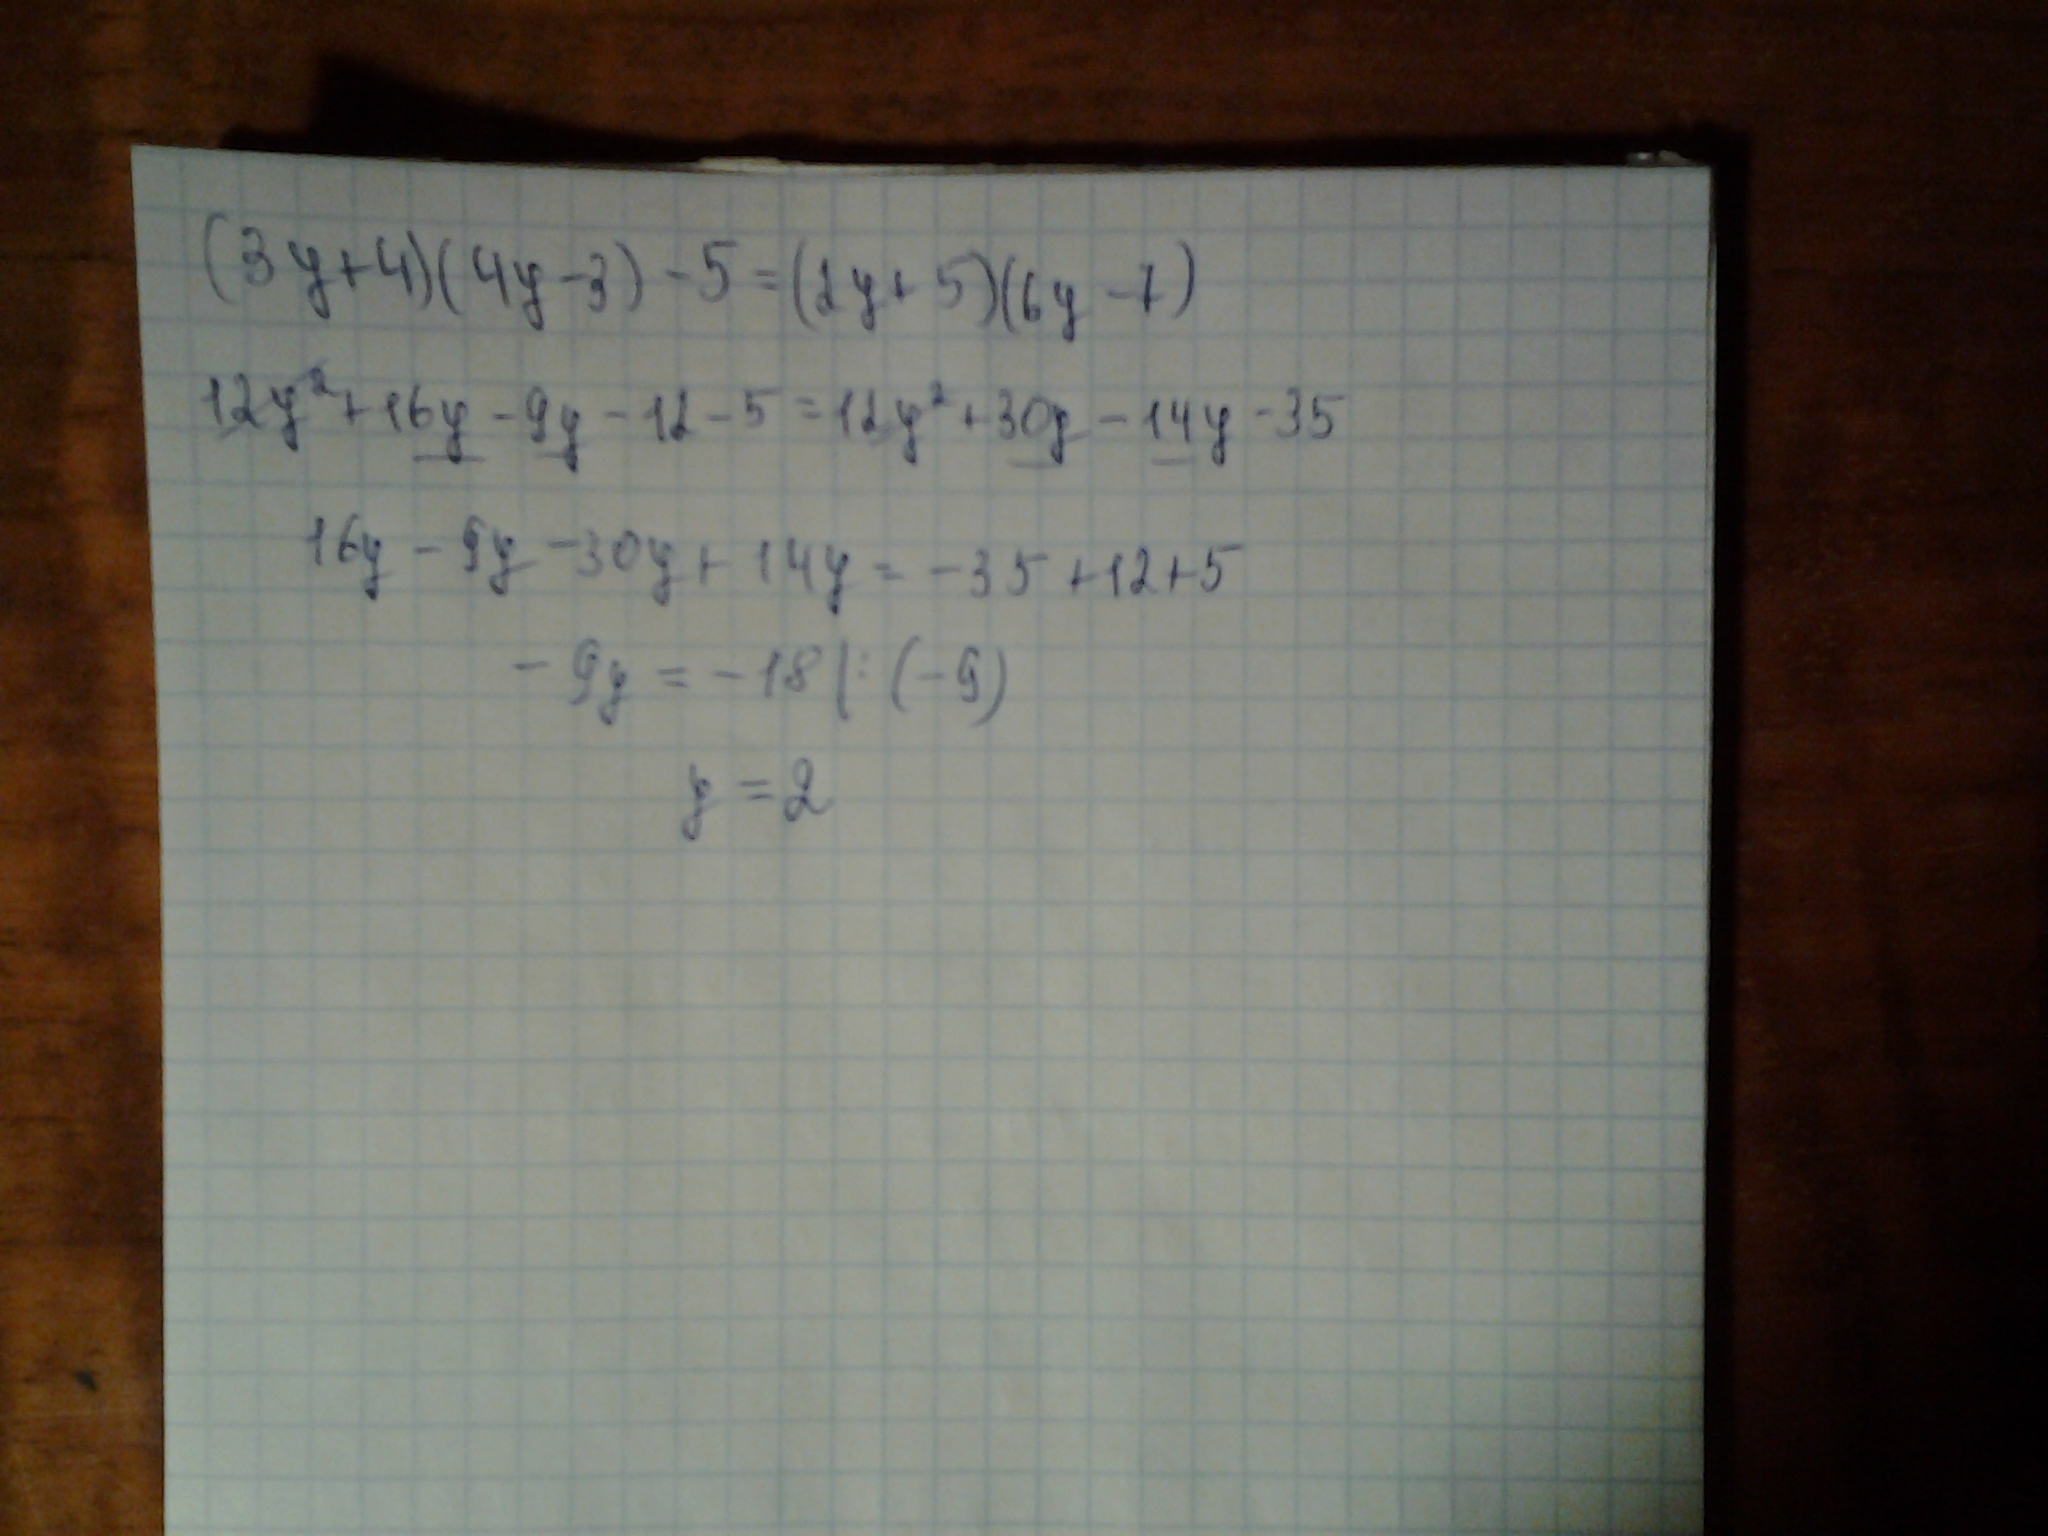 (3y+4)(4y-3)-5=(2y+5)(6y-7)
12y²+16y-9y-12-5=12y²+30y-14y-35
16y-9y-30y+14y=-35+12+5
-9y=-18|:(-9)
y=2